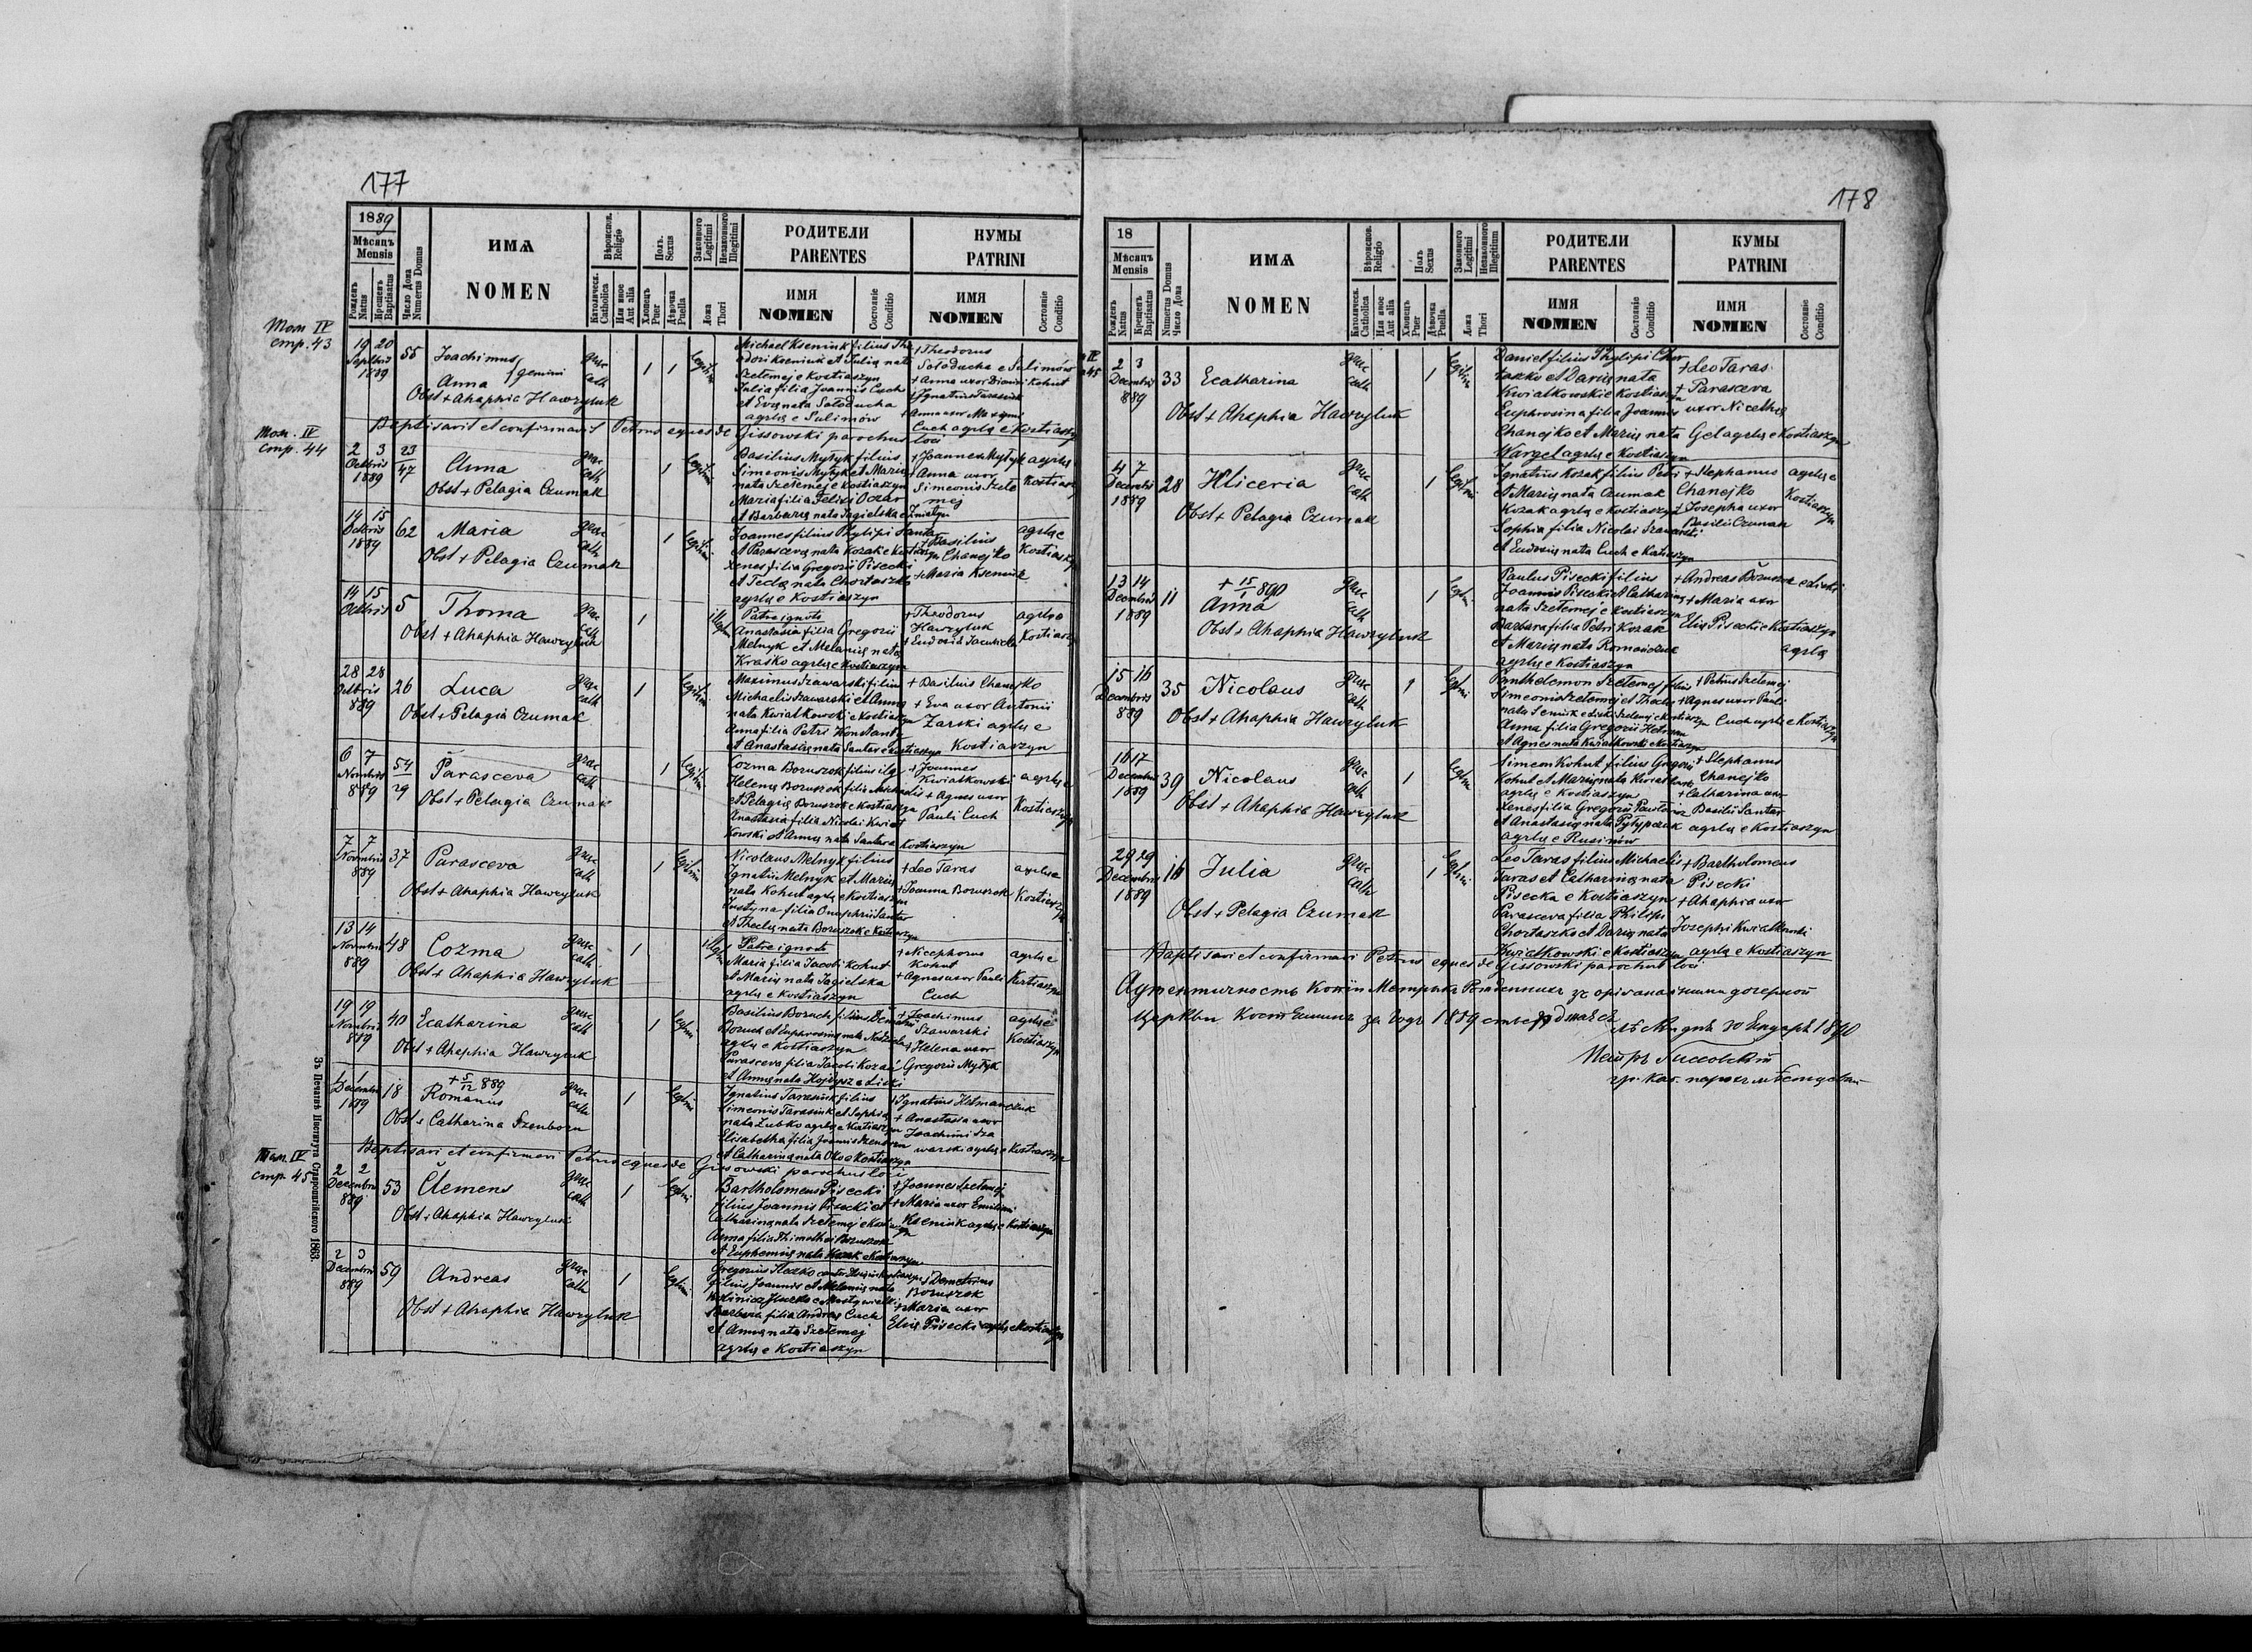 177
1889
Мѣсяцъ
Mensis
Рожденъ
Natus
Крещенъ
Baptisatus
Число Дома
Numerus Domus
ИМѦ
NOMEN
Вѣроиспов.
Religio
Католическ.
Catholica
Или иное
Aut alia
Полъ.
Sexus
Хлопецъ
Puer
Дѣвочка
Puella
Законного
Legitimi
Незаконного
Illegitimi
Ложа
Thori
РОДИТЕЛИ
PARENTES
ИМЯ
NOMEN
Состояніе
Conditio
КУМЫ
PATRINI
ИМЯ
NOMEN
Состояніе
Conditio
Том IV
стр. 43
19 20
Septbris
1889
55
Joachimus
Anna } gemini
Obst + Ahaphia Hawryluk
graec
cath
1 1
legitimi
Michael Kseniuk filius The
odori Kseniuk et Julię nata
Szełemej e Kostiaszyn
Julia filia Joannis Cuch
et Evę nata Sołoducha
agrlę e Sulimów
+ Theodorus
Sołoducha e Sulimów
+ Anna uxor Dionisi Kohut
+ Ignatius Tarasiuk
+ Anna uxor Maximi
Cuch agrlę e Kostiaszyn
Baptisavit et confirmavit Petrus eques de Gissowski parochus loci
Том. IV
стр. 44
2 3
Octbris
1889
23
47
Anna
Obst + Pelagia Czumak
graec
cath
1
legitimi
Basilius Mytyk filius
Simeonis Mytyk et Marię
nata Szełemej e Kostiaszyn
Maria filia Felixi
et Barbarę nata Jagielska e Żniatyn
+ Joannes Mytyk agrlę
+ Anna uxor
Simeonis Szełe
mej
Kostiaszyn
14 15
Octbris
1889
62
Maria
Obst + Pelagia Czumak
graec
cath
1
legitimi
Joannes filius Phylipi Santar
et Parascevę nata Kozak e Kostiaszyn
Xenes filia Gregorii Pisecki
et Teclę nata Chortaszko
agrlę e Kostiaszyn
+ Basilius
Chanejko
+ Maria Kseniuk
agrlę e
Kostiaszyn
14 15
Octbris
5
Thoma
Obst + Ahaphia Hawryluk
graec
cath
1
illegitimi
Patre ignoto
Anastasia filia Gregorii
Melnyk et Melanię nata
Krasko agrlę e Kostiaszyn
+ Theodorus
Hawryluk
+ Eudoxia
agrlę e
Kostiaszyn
28 28
Octbris
889
26
Luca
Obst + Pelagia Czumak
graec
cath
1
legitimi
Maximus Szawarski filius
Michaelis Szawarski et Annę
nata Kwiatkowski e Kostiaszyn
Anna filia Petri Konstanty
et Anastasię nata Santar e Kostiaszyn
+ Basilius Chanejko
+ Eva uxor Antonii
Żarski agrlę e
Kostiaszyn
6 7
Novmbris
889
54
29
Parasceva
Obst + Pelagia Czumak
graec
cath
1
legitimi
Cozma Boruszok filius ilg
Helenę Boruszok filia Michaelis
et Pelagię Boruszok e Kostiaszyn
Anastasia filia Nicolai Kwiat
kowski et Annę nata Santar e Kostiaszyn
+ Joannes
Kwiatkowski
+ Agnes uxor
Pauli Cuch
agrlę e
Kostiaszyn
7 7
Novmbris
889
37
Parasceva
Obst + Ahaphia Hawryluk
graec
cath
1
legitimi
Nicolaus Melnyk filius
Ignatii Melnyk et Marię
nata Kohut agrlę e Kostiaszyn
Justyna filia Onuphrii Santar
et Theclę nata Boruszok e Kostiaszyn
+ Leo Taras
+ Joanna Boruszok
agrlę e
Kostiaszyn
13 14
Novmbris
889
48
Cozma
Obst + Ahaphia Hawryluk
graec
cath
1
illegtmi
Patre ignoto
Maria filia Jacobi Kohut
et Marię nata Jagielska
agrlę e Kostiaszyn
+ Nicephorus
Kohut
+ Agnes uxor Pauli
Cuch
agrlę e
Kostiaszyn
19 19
Novmbris
889
40
Ecatharina
Obst + Ahaphia Hawryluk
graec
cath
1
legtmi
Basilius Boruch filius Demetrii
Boruch et Euphrosinę nata
agrlę e Kostiaszyn
Parasceva filia Jacobi Kozak
et Annę nata e Liski
+ Joachimus
Szawarski
+ Helena uxor
Gregorii Mytyk
agrlę e
Kostiaszyn
1 1
Decembris
1889
18
+ 5/12 889
Romanus
Obst + Catharina Szenborn
graec
cath
1
legtmi
Ignatius Tarasiuk filius
Simeonis Tarasiuk et Sophię
nata Zubko agrlę e Kostiaszyn
Elisabetha filia Joannis Szenborn
et Catharinę nata e Kostiaszyn
+ Ignatius Hetmanczuk
+ Anastasia uxor
Joachimi Sza
warski agrlę e Kostiaszyn
Baptisavi et confirmavi Petrus eques de Gissowski parochus loci
Том. IV
стр. 45
2 2
Decembris
889
53
Clemens
Obst + Ahaphia Hawryluk
graec
cath
1
legtmi
Bartholomeus Pisecki
filius Joannis Pisecki et
Catharinę nata Szełemej e Kostiaszyn
Anna filia Thimothei Boruszok
et Euphemię nata Kozak e Kostiaszyn
+ Joannes Szełemej
+ Maria uxor Emiliani
Kseniuk agrlę e Kostiaszyn
2 3
Decembris
889
59
Andreas
Obst + Ahaphia Hawryluk
graec
cath
1
legtmi
Gregorius Fleszko
filius Joannis et Melanię nata
Barbara filia Andreę Cuch
et Annę nata Szełemej
agrlę e Kostiaszyn
+ Demetrius
Boruszok
+ Maria uxor
Elię Pisecki agrlę e Kostiaszyn
Зъ Печатнѣ Института Ставропигійского 1863.
178
18
Мѣсяцъ
Mensis
Рожденъ
Natus
Крещенъ
Baptisatus
Numerus Domus
Число Дома
ИМѦ
NOMEN
Вѣроиспов.
Religio
Католическ.
Catholica
Или иное
Aut alia
Полъ
Sexus
Хлопецъ
Puer
Дѣвочка
Puella.
Законного
Legitimi
Незаконного
Illegitimum
Ложа
Thori
РОДИТЕЛИ
PARENTES
ИМЯ
NOMEN
Состояніе
Conditio
КУМЫ
PATRINI
ИМЯ
NOMEN
Состояніе
Conditio
2 3
Decembris
889
33
Ecatharina
Obst + Ahaphia Hawryluk
graec
cath
1
legitimi
Daniel filius Phylipi Chor
taszko et Darię nata
Kwiatkowski e Kostiaszyn
Euphrosina filia Joannis
Chanejko et Marię nata
Wargel agrlę e Kostiaszyn
+ Leo Taras
+ Parasceva
uxor Nicethę
Gel agrlę e Kostiaszyn
4 7
Decembris
1889
28
Hliceria
Obst + Pelagia Czumak
graec
cath
1
legitimi
Ignatius Kozak filius Petri
et Marię nata Czumak
Kozak agrlę e Kostiaszyn
Sophia filia Nicolai Szawarski
et Eudoxię nata Cuch e Kostiaszyn
+ Stephanus
Chanejko
+ Josepha uxor
Basilii Czumak
agrlę e
Kostiaszyn
13 14
Decembris
1889
11
+ 15/1 890
Anna
Obst + Ahaphia Hawryluk
graec
cath
1
legtmi
Paulus Pisecki filius
Joannis Pisecki et Catharinę
nata Szełemej e Kostiaszyn
Barbara filia Petri Kozak
et Marię nata Romańczuk
agrlę e Kostiaszyn
+ Andreas Boruszok e Liski
+ Maria uxor
Elię Pisecki e Kostiaszyn
agrlę
15 16
Decembris
889
35
Nicolaus
Obst + Ahaphia Hawryluk
graec
cath
1
legtmi
Panthelemon Szełemej filius
Simeonis Szełemej et Theclę
nata Semiuk e Liski Szełemej e Kostiaszyn
Anna filia Gregorii Hetman
et Agnes nata Kwiatkowski e Kostiaszyn
+ Petrus Szełemej
+ Agnes uxor Pauli
Cuch agrlę e Kostiaszyn
16 17
Decembris
1889
39
Nicolaus
Obst + Ahaphia Hawryluk
graec
cath
1
legtmi
Simeon Kohut filius Gregorii
Kohut et Marię nata Kwiatkowski
agrlę e Kostiaszyn
Xenes filia Gregorii
et Anastasię nata Pyłypczuk
agrlę e Rusinów
+ Stephanus
Chanejko
+ Catharina uxor
Basilii Santar
agrlę e Kostiaszyn
29 29
Decembris
1889
16
Julia
Obst + Pelagia Czumak
graec
cath
1
legtmi
Leo Taras filius Michaelis
Taras et Catharinę nata
Pisecka e Kostiaszyn
Parasceva filia Philipi
Chortaszko et Darię nata
Kwiatkowski e Kostiaszyn
+ Bartholomeus
Pisecki
+ Ahaphia uxor
Josephi Kwiatkowski
agrlę e Kostiaszyn
Baptisavi et confirmavi Petrus eques de Gissowski parochus loci
Аутентичность Копіи Метрики Рожденныхъ зъ оригинальными дочерной
церкви Костяшинъ за годъ 1889
1890
Петръ Гиссовскій
гр. кат. парохъ